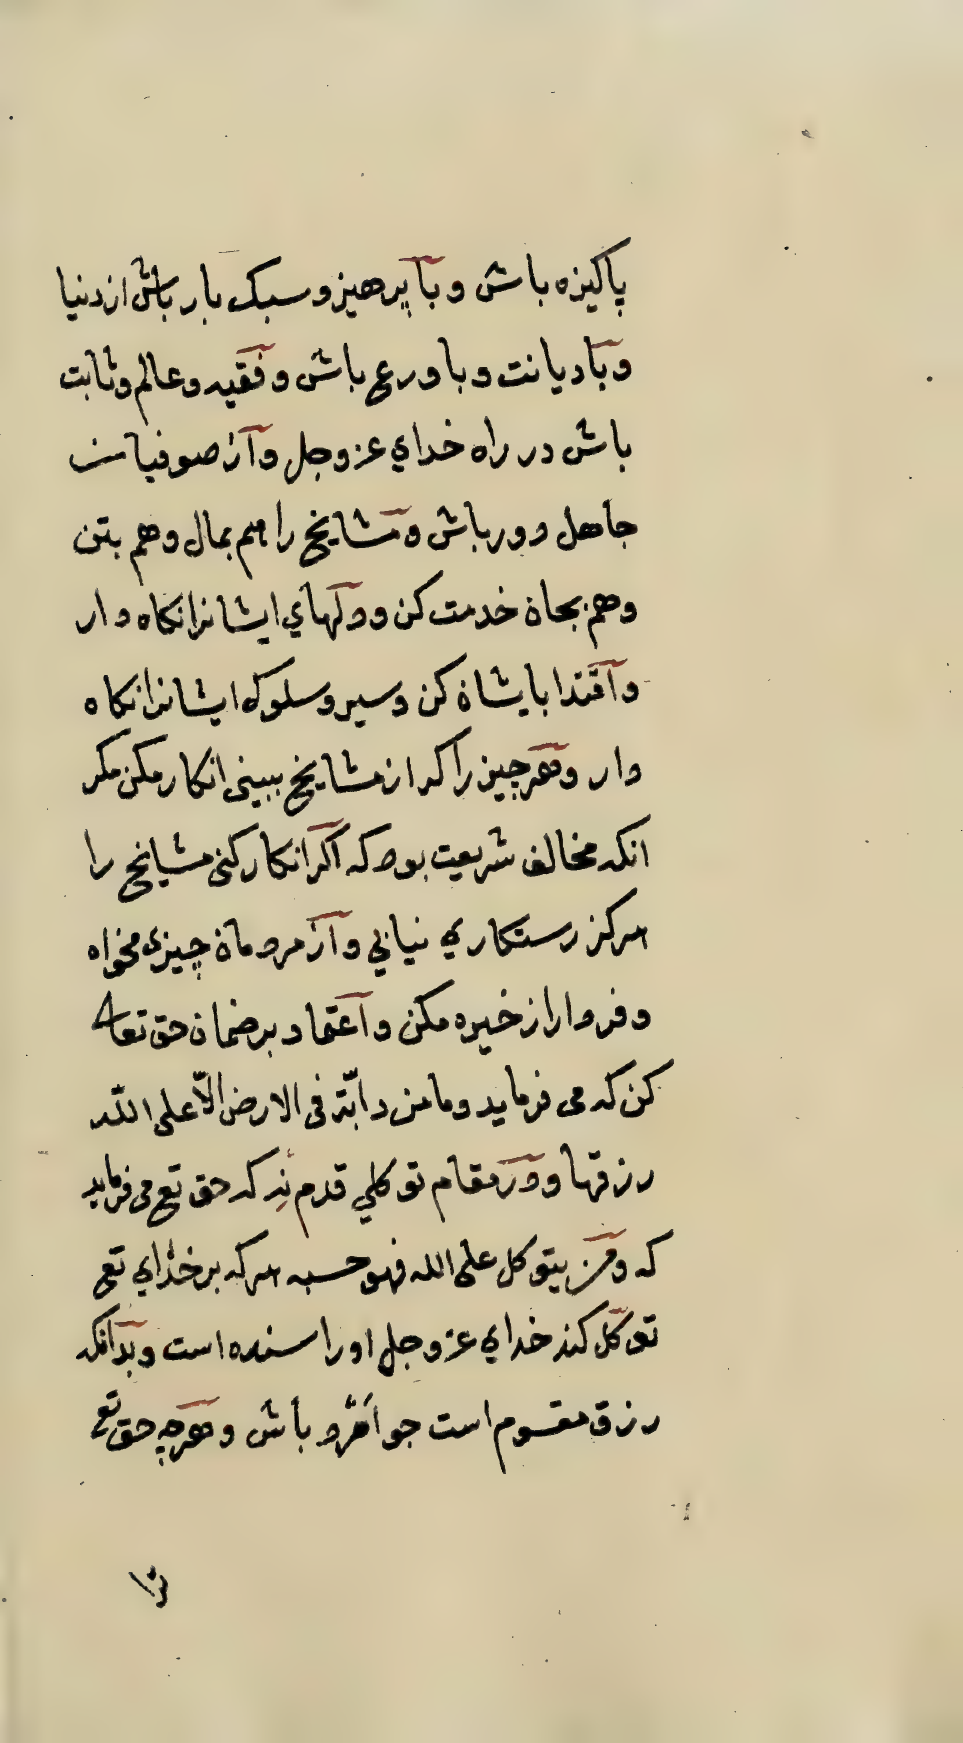 پاکیزه باش و با پرهیز و سبک بار باش از دنیا
و با دیانت و با ورع باش و فقیه و عالم و ثابت
باش در راه خدای عز و جل و از صوفیان
جاهل دور باش و مشایخ را هم بمال و هم بتن
و هم بجاه خدمت کن و دلهای ایشانرا نکاه دار
و اقتدا بایشان کن و سیر و سلوک ایشانرا نکاه
دار و هر چیز را که از مشایخ ببینی انکار مکن مکر
انکه مخالف شریعت بود که اکر انکار کنی مشایخ را
هرکز رستکاری نیابی و از مردمان چیزی مخواه
و فردا را ذخیره مکن و اعتماد بر ضمان حق تعالی
کن که می فرماید وما من دابّة فی الارض الاّ علی اللّه
رزقها و در مقام توکلی قدم نِه که حق تع می فرماید
که ومن یتوکل علی الله فهو حسبه هرکه بر خدای تع
توکّل کند خدای عز و جل او را بسنده است و بدانکه
رزق مقسوم است جوامرد باش و هرچه حق تع
ترا